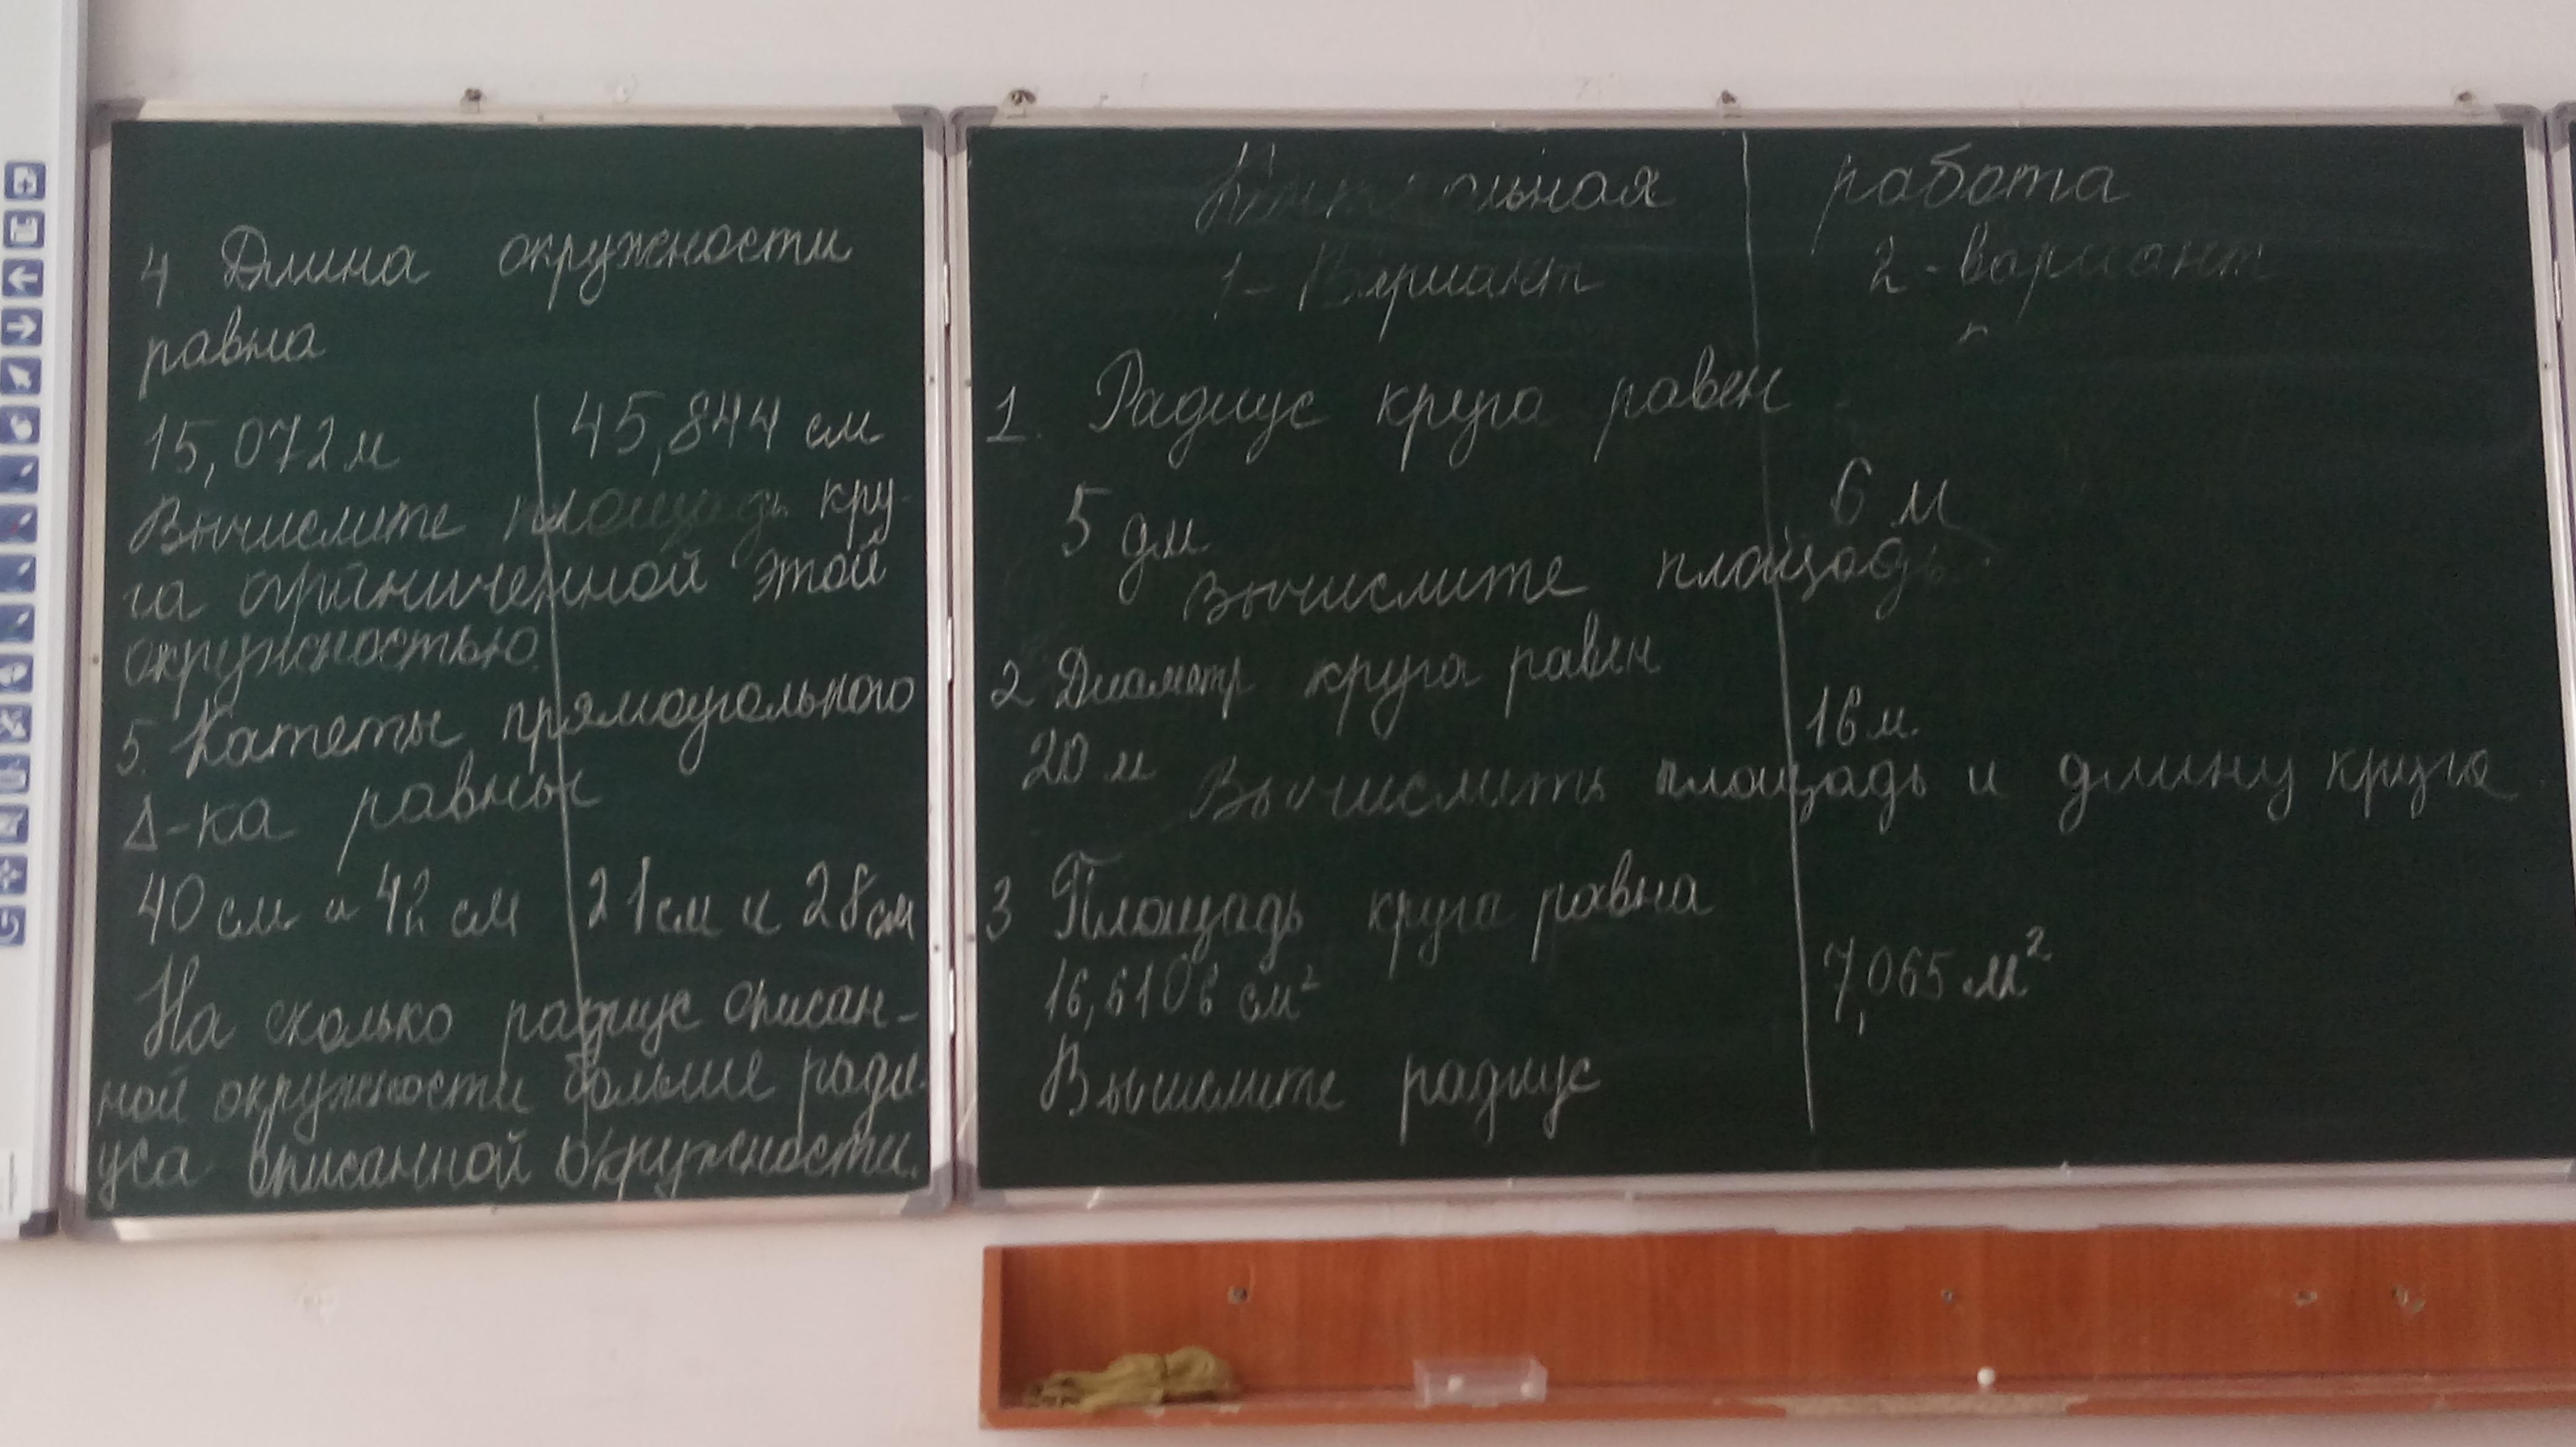 Контрольная работа
1-Вариант 2-вариант
1. Радиус круга равен
5 дм 6 м
Вычислите площадь.
2 Диаметр круга равен
20 м 16 м.
Вычислить площадь и длину круга
3 Площадь круга равна
16,6106 см² 7,065 м²
Вычислите радиус
4 Длина окружности
равна
15,072 м 45,844 см
Вычислите площадь кру-
га ограниченной этой
окружностью.
5. Катеты прямоугольного
Δ-ка равны
40 см и 42 см 21 см и 28 см
На сколько радиус описан-
ной окружности больше ради-
уса вписанной окружности.